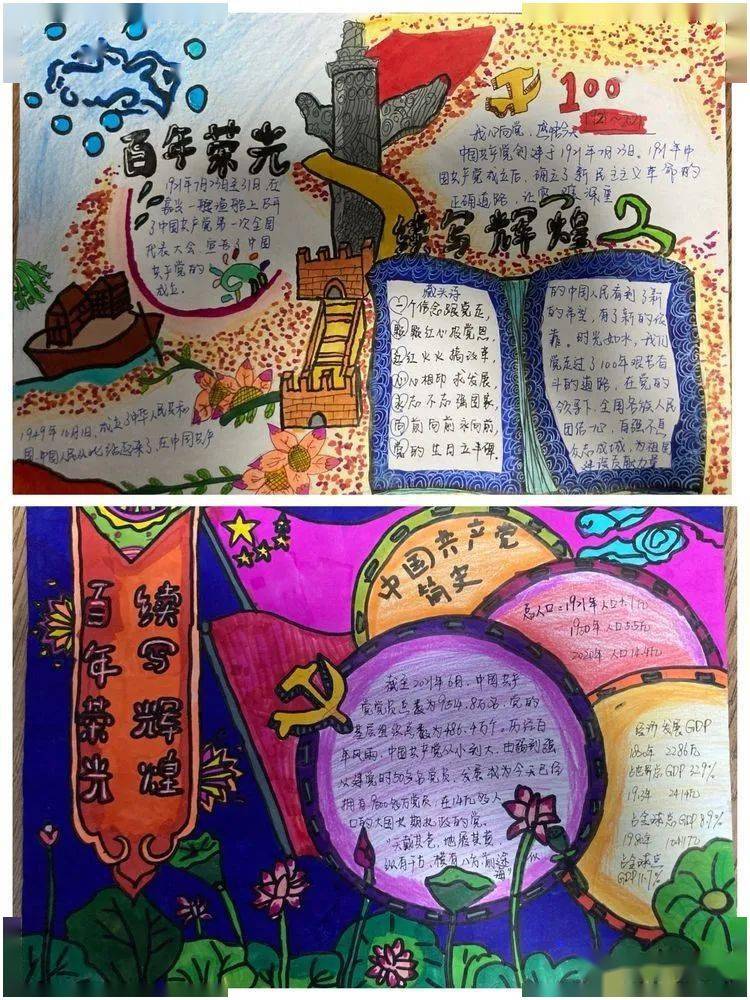 百年荣光
1921年7月23日至31日,在
嘉兴一艘游船上召开
了中国共产党第一次全国
代表大会,宣告了中国
共产党的
成立。
100
1921~2021
我心向党,
中国共产党创建于1921年7月23日。1921年中
国共产党成立后,确立了新民主主义革命的
正确道路,让
续写辉煌
藏头诗
一个信念跟党走,
颗颗红心报党恩,
红红火火搞改革,
心心相印求发展,
志志强国家,
向前向前永向前,
党的生日立丰碑。
的中国人民看到了新
的希望,有了新的依
靠。时光如水,我们
党走过了100年艰苦奋
斗的道路,在党的
领导下,全国各族人民
团结一心,自强不息
众志成城,为祖国
建设贡献力量
1949年10月1日,成立了中华人民共和
国,中国人民从此站起来了,在中国共产
百年荣光
续写辉煌
中国共产党
简史
截至2021年6月,中国共产
党党员总数为9514.8万名,党的
基层组织总数为486.4万个。历经百
年风雨,中国共产党从小到大,由弱到强
从建党的50多名党员,发展成为今天已经
拥有9500多万党员,在14亿多人
口的大国长期执政的党。
“天戴其苍,地履其黄,
纵有千古,横有八荒,前途
似
海”
总人口:1921年人口4.1亿
1950年人口5.5亿
2020年人口14.1亿
经济发展GDP
1820年 2286亿
占世界总GDP 32.9%
2414亿
占全球总GDP 8.9%
GDP